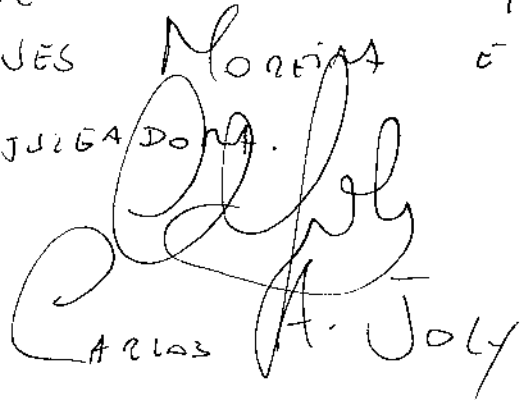 VES MOREIRA E
JULGADORA.
CARLOS A. JOLY